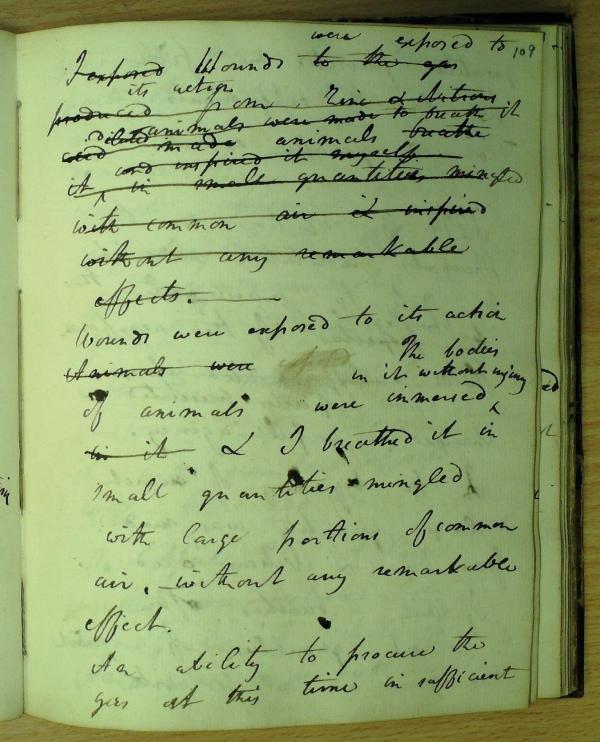 were exposed to 109
I exposed Wounds to the gas
its action
produced from Zinc & Nitrous
diluted animals were made to breath it
acid made animals breathe
and inspired it myself
it in small quantities mingled
with common air & inspired
without any remarkable
effects.
Wounds were exposed to its action
The bodies
Animals were
in it without injury
of animals were immersed
in it & I breathed it in
small quantities mingled
with large portions of common
air, without any remarkable
effect.
An ability to procure the
gas at this time in sufficient